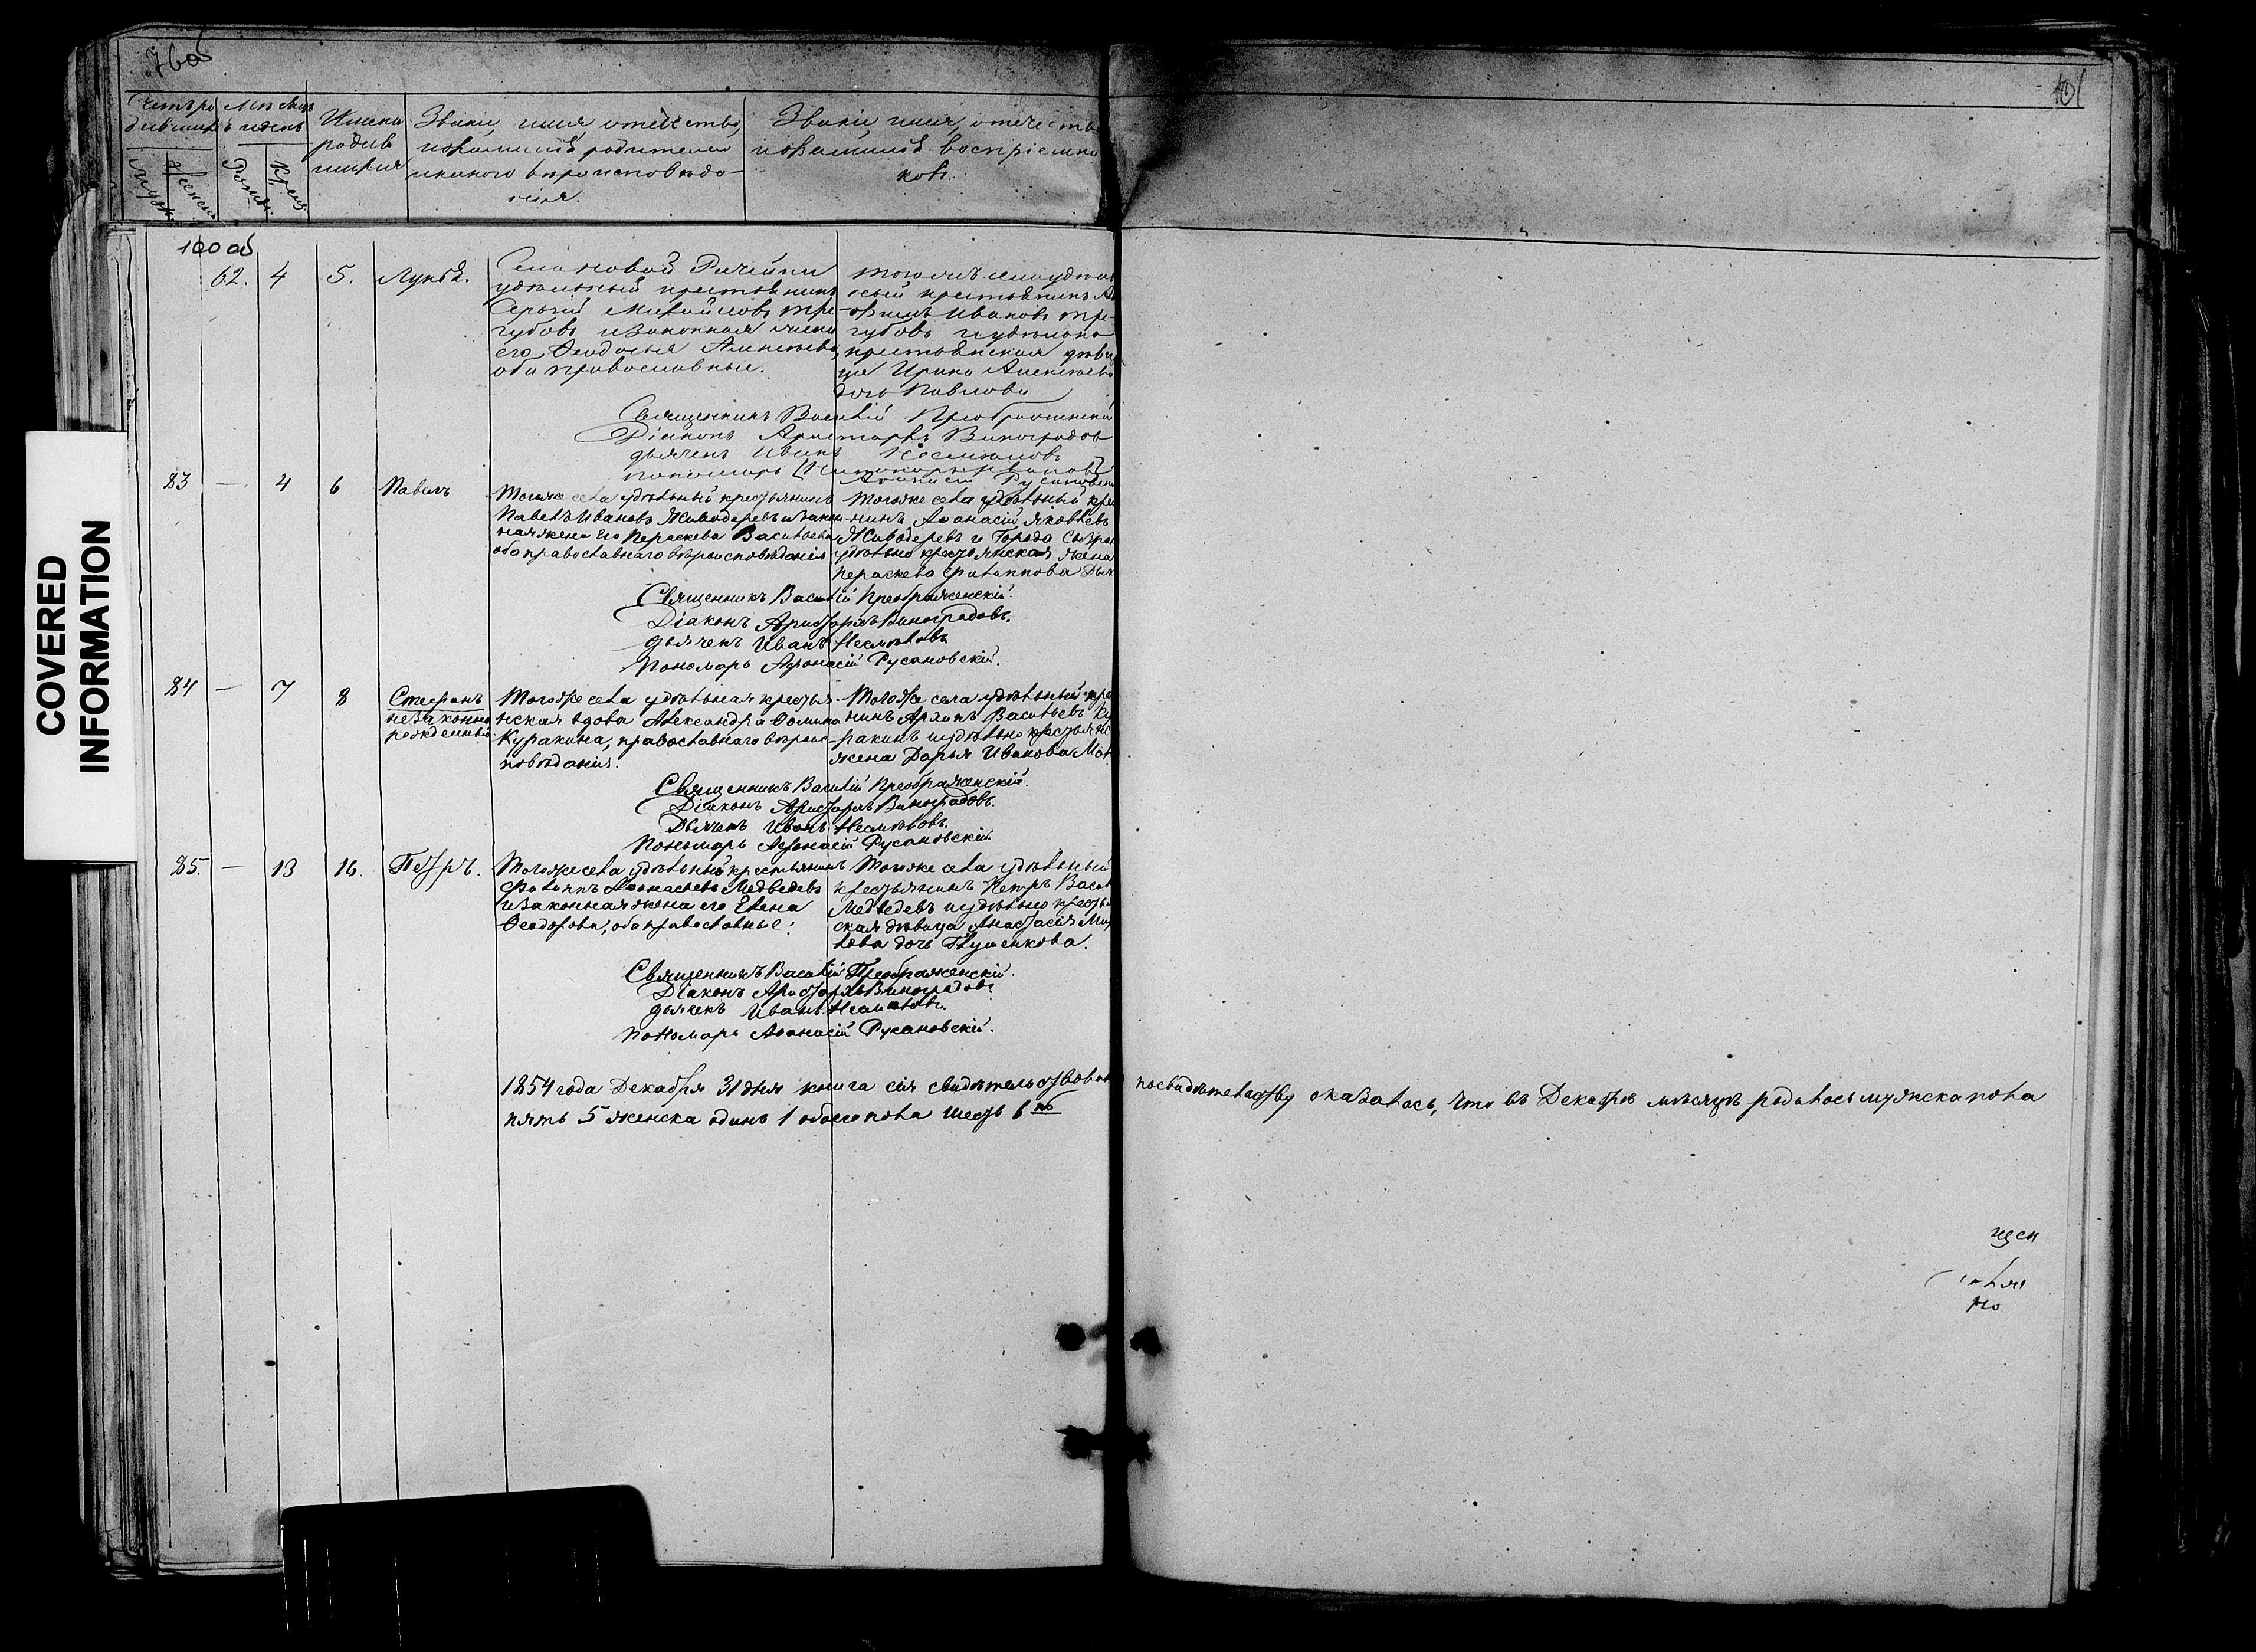 76об
101
Счетъ ро
дившихъ
Мѣсяцъ
и день
Имена
родив
шихся
Званіе, имя, отечество,
и фамилія родителей
и какого вѣроисповѣда-
нія.
Званіе, имя, отечество
и фамилія воспріемни
ковъ.
Муж.
Женск.
Рожд.
Крещ.
100 об
62. 4 5. Лукія.
Села Новой Рачейки
удѣльный крестьянинъ
Сергій Михайловъ Тре-
губовъ и законная жена
его Ѳеодосья Алексѣева,
оба православные.
тогожъ села удѣль
ный крестьянинъ
Ивановъ Тре-
губовъ и удѣльно
крестьянская дѣви
ца Ирина Алексѣева
дочь Павлова
Священникъ Василій Преображенскій
Діаконъ Аристархъ Виноградовъ
дьячекъ Иванъ Несмѣловъ
пономарь
Аѳанасій Русановскій
83 — 4 6 Павелъ
Тогоже села удѣльный крестьянинъ
Павелъ Ивановъ Живодеревъ и закон-
ная жена его Пераскева Васильева
оба православнаго вѣроисповѣданія
Тогоже села удѣльный крес
нинъ Аѳанасій Яковлевъ
Живодеревъ и Города Сызран
удѣльно крестьянская жена
Пераскева Филиппова
Священникъ Василій Преображенскій.
Діаконъ Аристархъ Виноградовъ.
дьячекъ Иванъ Несмѣловъ
Пономарь Афонасій Русановскій.
84 — 7 8 Стефанъ
незаконно
рожденный
Тогоже села удѣльная крестья-
нская вдова Александра Ѳомина
Куракина, православнаго вѣроис-
повѣданія.
Тогоже села удѣльный кре
нинъ Архипъ Васильевъ Ку
ракинъ и удѣльно крестьянс
жена Дарья Иванова
Священникъ Василій Преображенскій.
Діаконъ Аристархъ Виноградовъ.
Дьячекъ Иванъ Несмѣловъ.
Пономарь Афонасій Русановскій.
85. — 13 16. Петръ.
Тогоже села удѣльный крестьянинъ
Филиппъ Афонасьевъ Медведевъ
и законная жена его Елена
Ѳеодорова, оба православные.
Тогоже села удѣльный
крестьянинъ Петръ Васил
Медведевъ и удѣльно кресть
ская дѣвица Анастасія
лова дочь Глушенкова.
Священникъ Василій Преображенскій.
Діаконъ Аристархъ Виноградовъ
дьячекъ Иванъ Несмѣловъ.
пономарь Аѳонасій Русановскій.
1854 года Декабря 31 дня книга сія свидѣтельствован посвидѣтельству оказалось, что въ Декабрѣ мѣсяцѣ родилось мужска пола
пять 5 женска одинъ 1 обоего пола шесть 6
щен
но
COVERED
INFORMATION